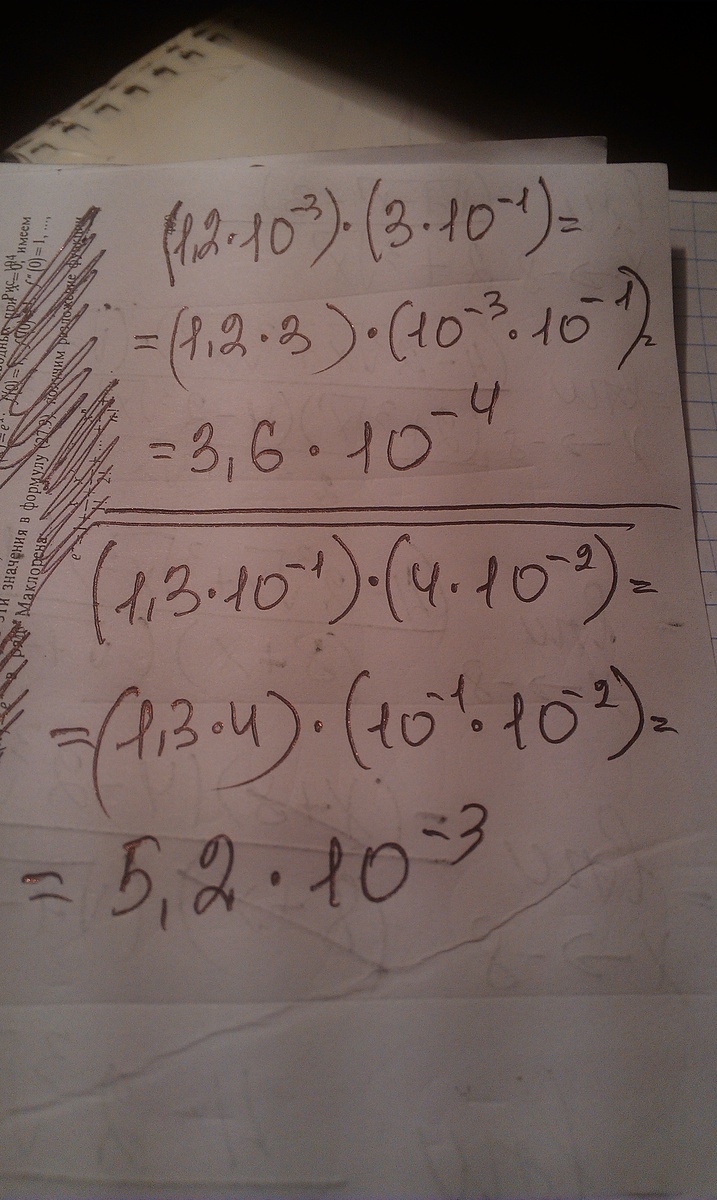 (1,2·10⁻³)·(3·10⁻¹)=
=(1,2·3)·(10⁻³·10⁻¹)=
=3,6·10⁻⁴
(1,3·10⁻¹)·(4·10⁻²)=
=(1,3·4)·(10⁻¹·10⁻²)=
=5,2·10⁻³
имеем
значения в формулу (27.9), получим разложение функции
в ряд Маклорена